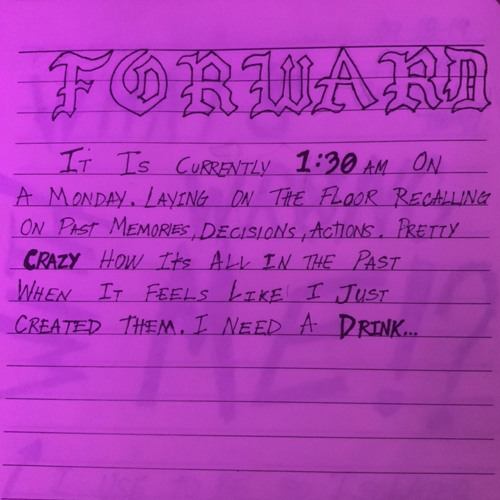 FORWARD
IT IS CURRENTLY 1:30 AM ON
A MONDAY. LAYING ON THE FLOOR RECALLING
ON PAST MEMORIES, DECISIONS, ACTIONS. PRETTY
CRAZY HOW ITS ALL IN THE PAST
WHEN IT FEELS LIKE I JUST
CREATED THEM. I NEED A DRINK...